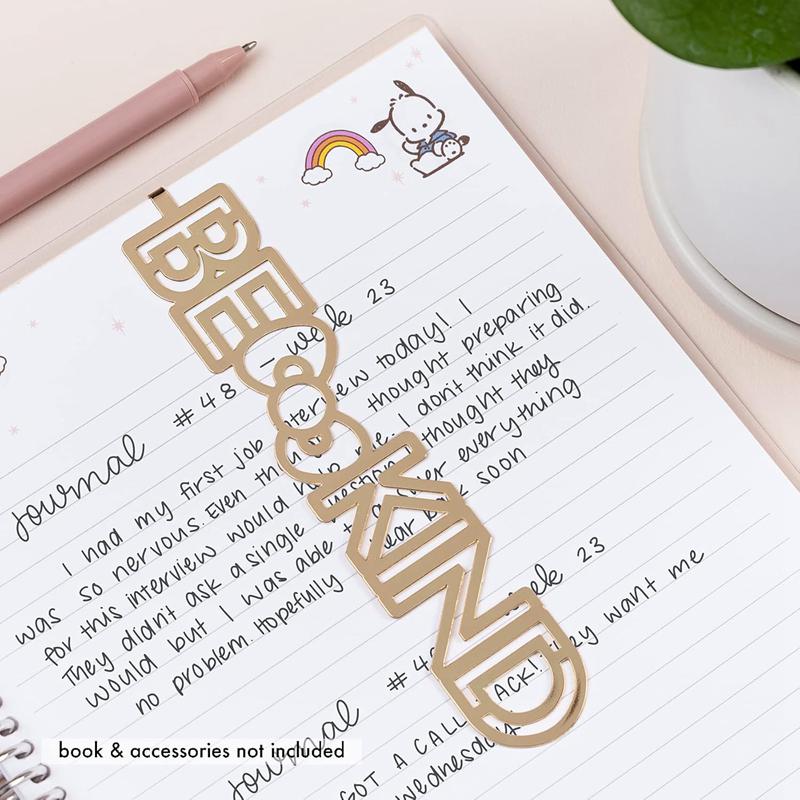 BE
KIND
Journal #48 – week 23
I had my first job interview today! I
was so nervous. Even though thought preparing
for this interview would help me, I don't think it did.
They didn't ask a single question thought they
would but I was able to answer everything
no problem. Hopefully hear back soon
Journal #4 week 23
GOT A CALL BACK! They want me
Wednesday
book & accessories not included